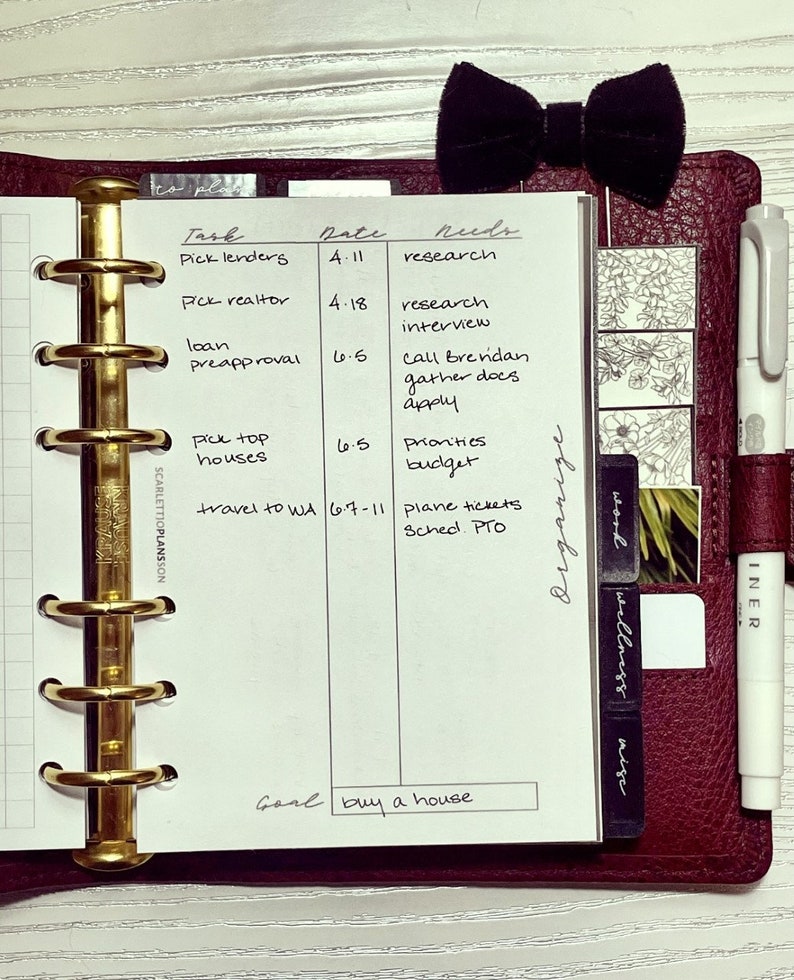 to plan
Task Date Needs
pick lenders 4.11 research
pick realtor 4.18 research
interview
loan
preapproval 6.5 call Brendan
gather docs
apply
pick top
houses 6.5 priorities
budget
travel to WA 6.7-11 plane tickets
sched. PTO
Organize
SCARLETTJOPLANSSON
KRAUSE
work
wellness
misc
INER
Goal buy a house